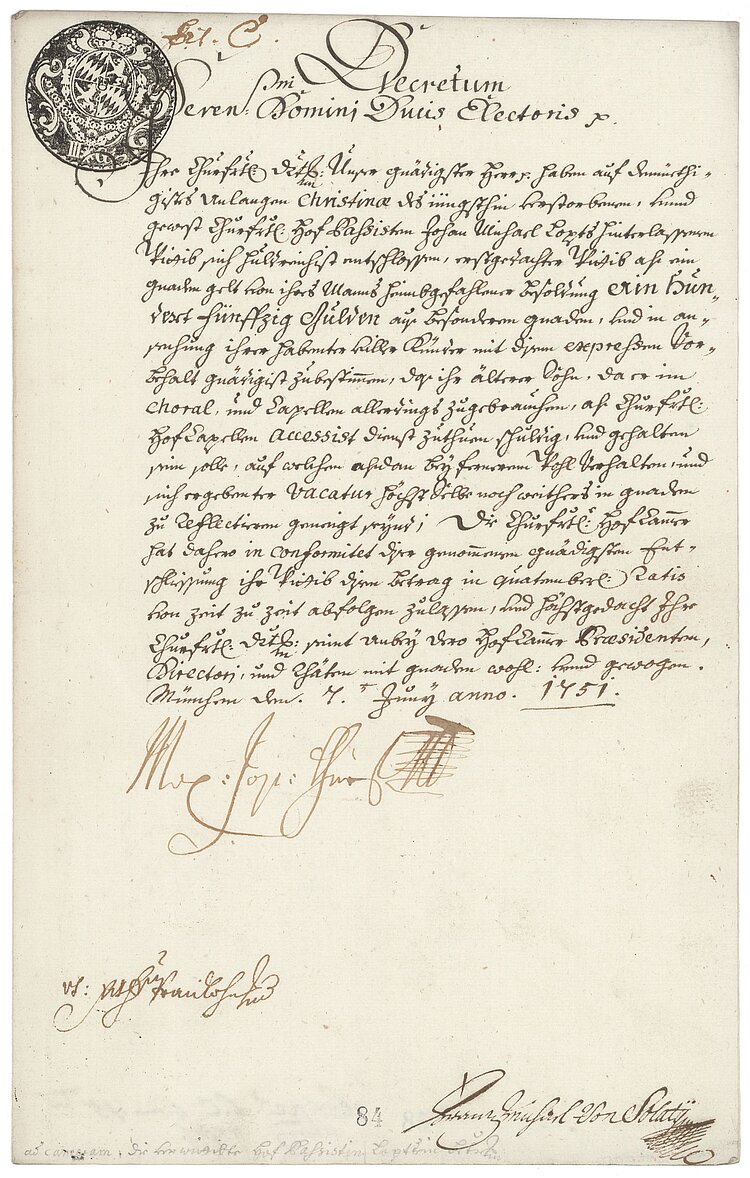 Lit. C.
Decretum
Seren:mi Domini Ducis Electoris p.
Ihre Churfrtl: Drtl: Unser gnädigster Herr p. haben auf demüethi-
gistes Anlangen Christinæ des iüngsthin verstorbenen, vnnd
gewest Churfrtl: Hof Bassisten Johan Michael Lopts hinterlassenen
Wittib sich huldreichist entschlossen, erstgedachter Wittib als ein
gnaden gelt von ihres Manns heimbgefahlener besoldung Ein Hun-
dert Fünffzig Gulden aus besonderen gnaden, vnd in an-
sechung ihrer habenter viller Künder mit disem expressen Vor-
behalt gnädigist zubestimmen, das ihr älterer Sohn, da er im
Choral, und Capellen allerdings zugebrauchen, als Churfrtl:
Hof Capellen Accessist dienst zuthuen schuldig, vnd gehalten
sein solle, auf welchen alsdan bey fernerem Wohl Verhalten, und
sich ergebenter Vacatur höchst Selbe noch weithers in gnaden
zu reflectieren geneigt seynd; Die Churfrtl: Hof Camer
hat dahero in Conformitet diser genommenen gnädigsten Ent-
schliessung ihr Wittib disen betrag in quatemberl: Ratis
von Zeit zu Zeit abfolgen zulassen, vnd höchstgedacht Ihre
Churfrtl: Drtl: seint anbey dero Hof Camer Præsidenten,
Directori, und Räthen mit gnaden wohl: vnnd gewogen.
München den 7.t Juny anno. 1751.
Max: Jos: Churf
vt:
Franz Michael Von Solaty
84
ad cameram, die verwittibte Hof Bassistin Loptsin betr